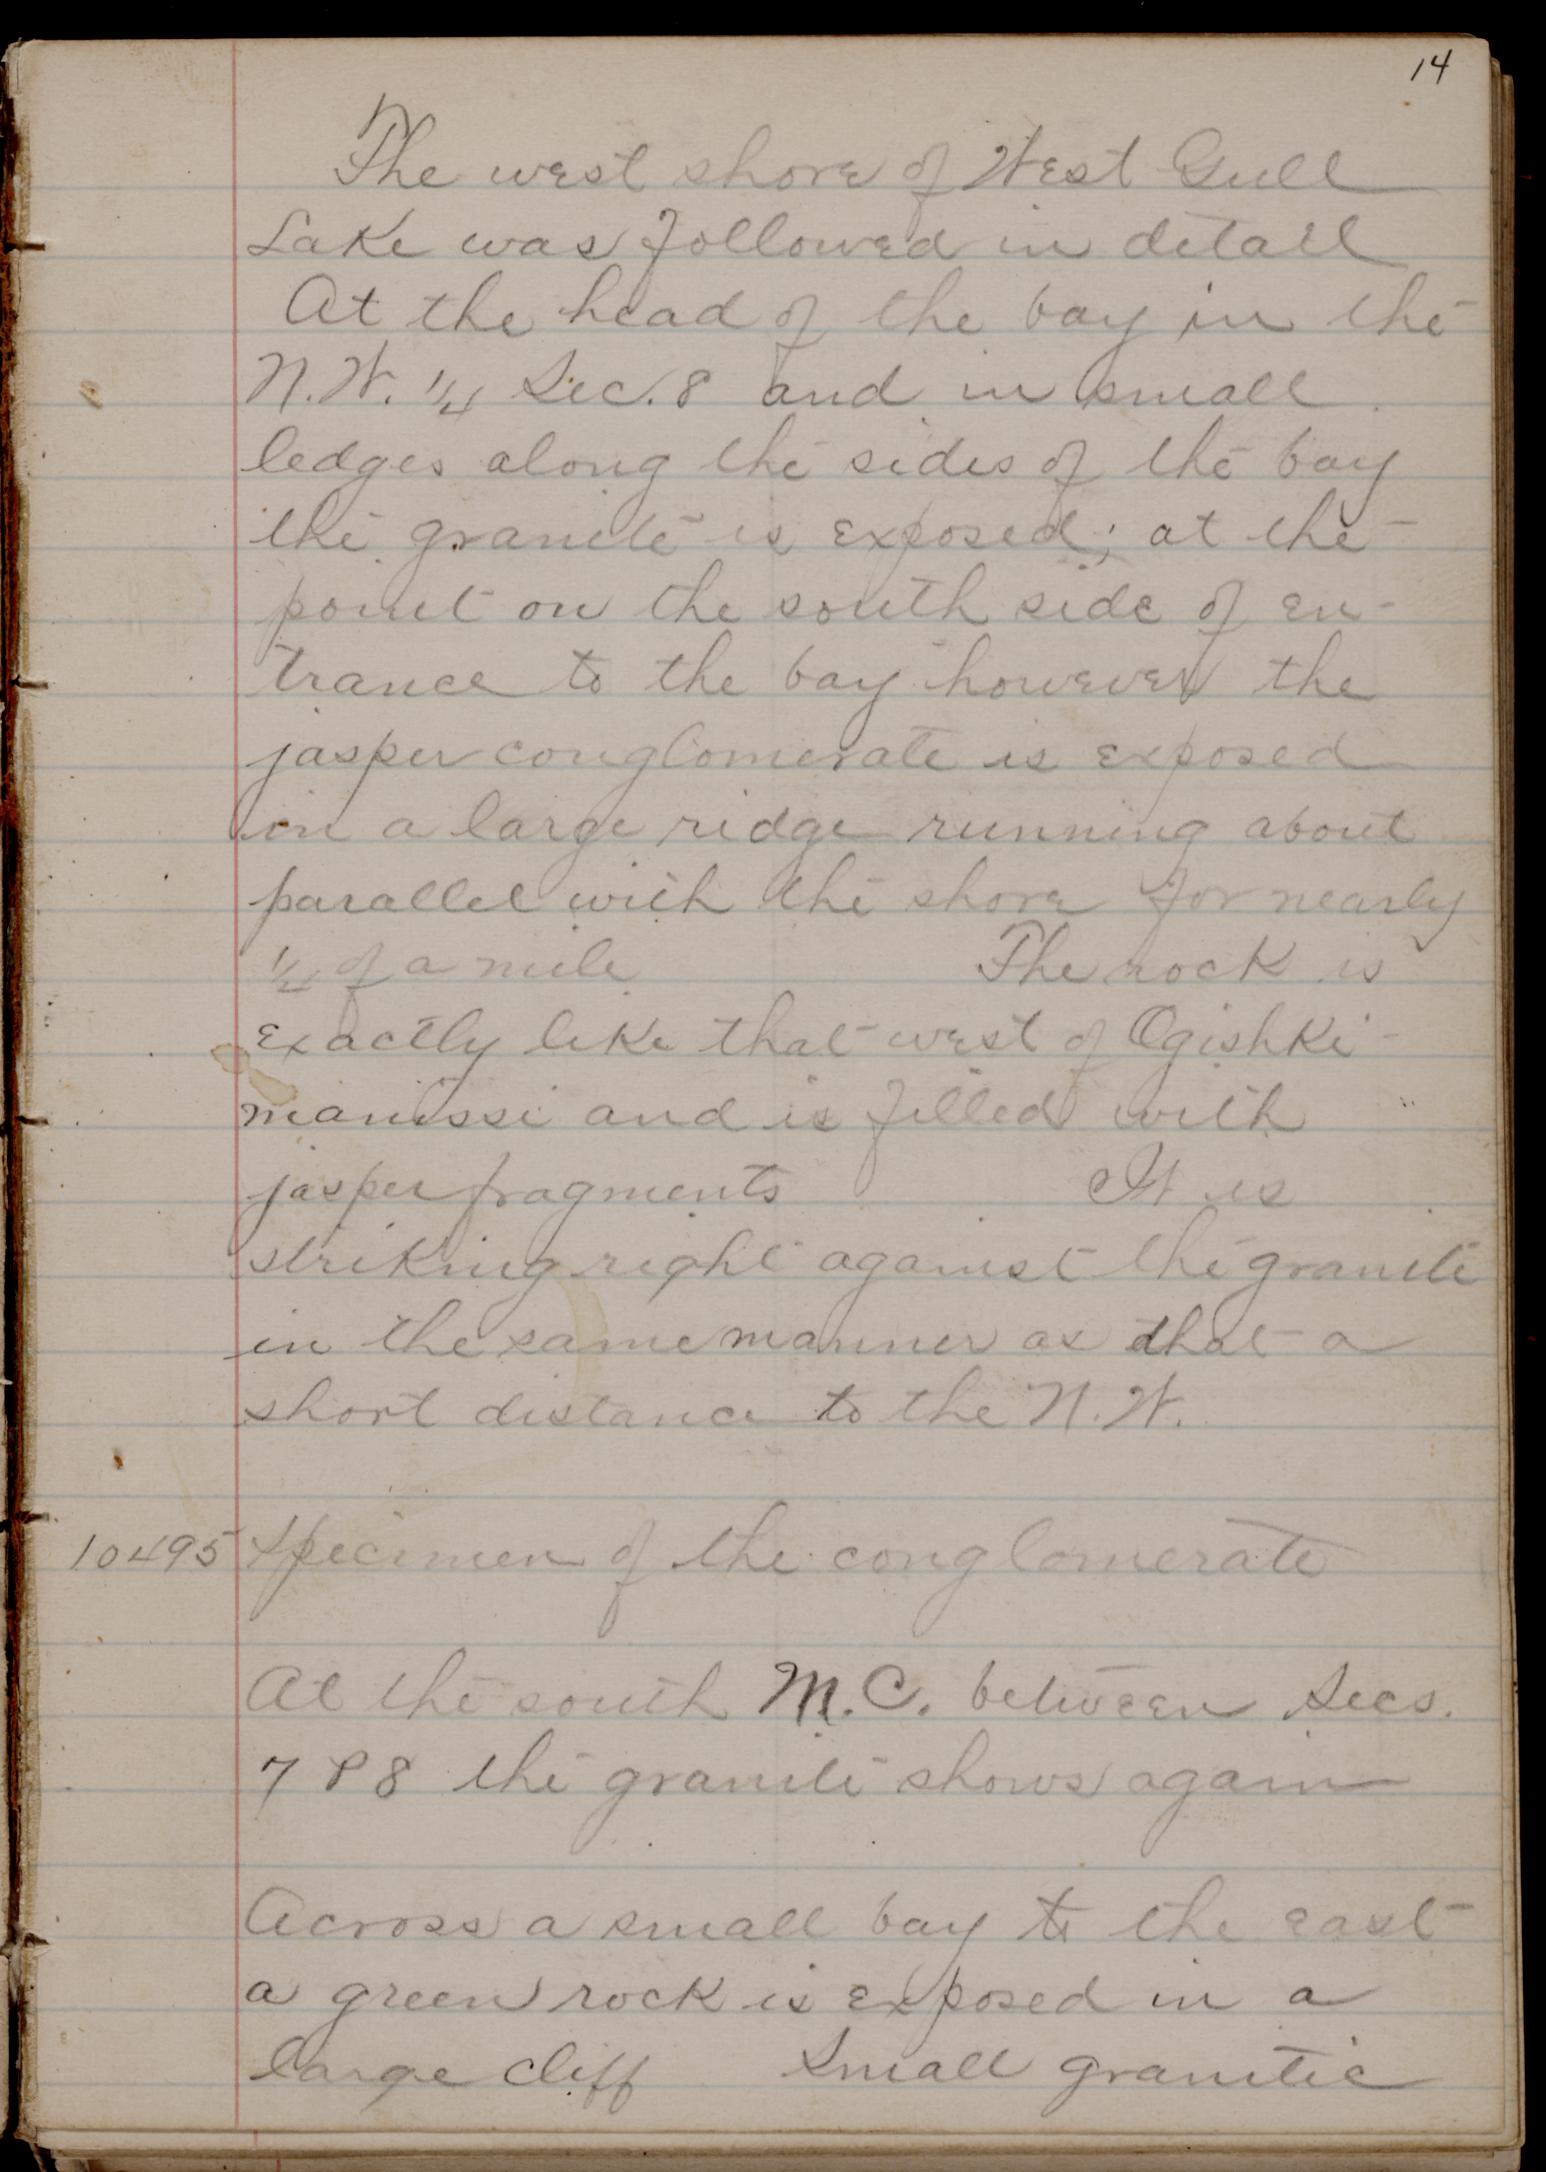 14
The west shore of West Gull
Lake was followed in detail
At the head of the bay in the
N.W. 1/4 Sec. 8 and in small
ledges along the sides of the bay
the granite is exposed; at the
point on the south side of en-
trance to the bay however the
jasper conglomerate is exposed
in a large ridge running about
parallel with the shore for nearly
1/4 of a mile The rock is
exactly like that west of Ogishki-
manissi and is filled with
jasper fragments It is
striking right against the granite
in the same manner as that a
short distance to the N.W.
10495 Specimen of the conglomerate
At the south M.C. between Secs.
7 & 8 the granite shows again
Across a small bay to the east
a green rock is exposed in a
large cliff Small granitic